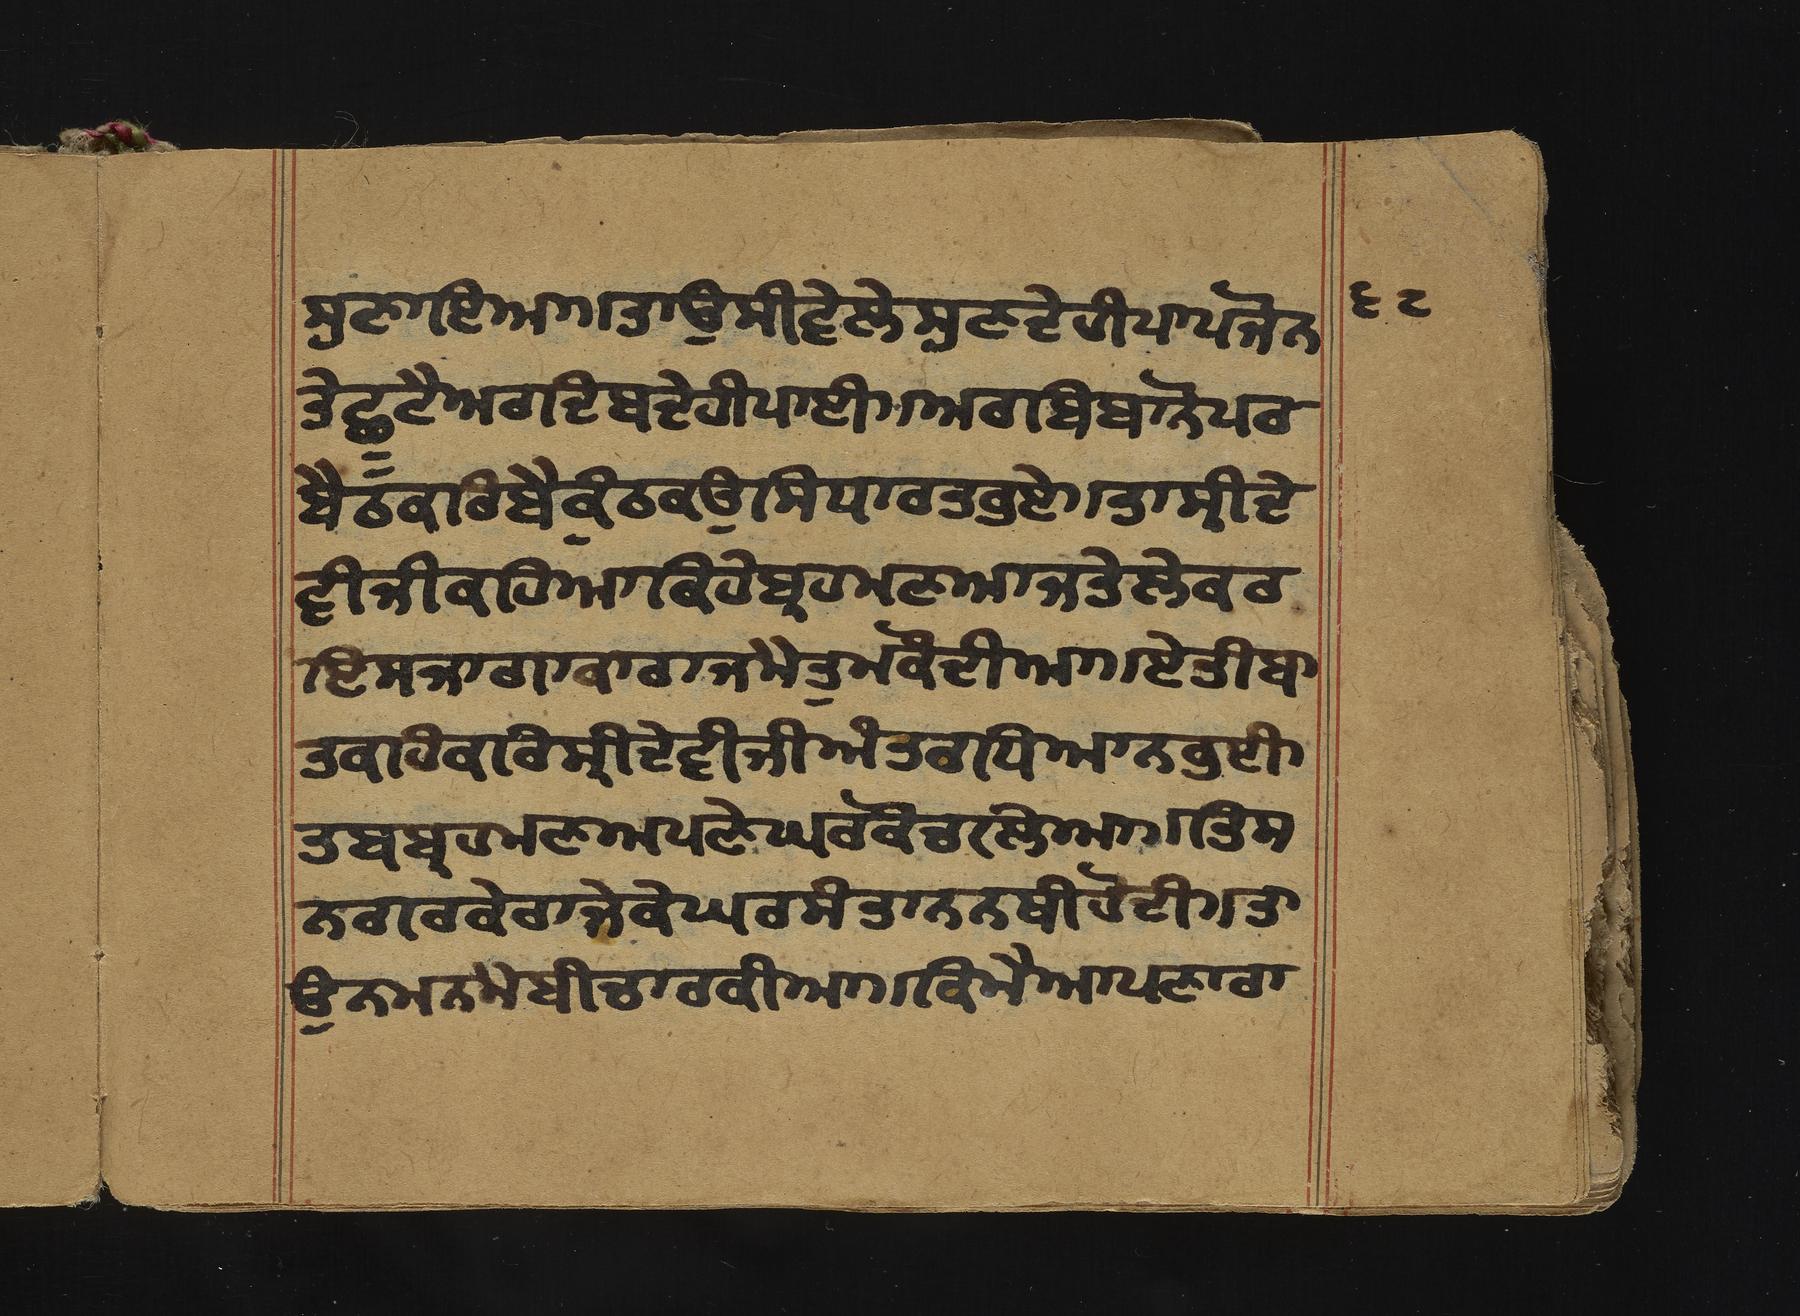 ਸੁਣਾਇਆ।ਤਾਉਸੀਵੇਲੇਸੁਣਦੇਹੀਪਾਪਜੋਨ ੬੮
ਤੇਛੂਟੈਅਰਦਿਬਦੇਹੀਪਾਈ।ਅਰਬਿਬਾਨੋਪਰ
ਬੈਠਕਰਿਬੈਕੁੰਠਕਉਸਿਧਾਰਤਹੁਏ।ਤਾਸ੍ਰੀਦੇ
ਵੀਜੀਕਹਿਆਕਿਹੇਬ੍ਰਹਮਣਆਜਤੇਲੇਕਰ
ਇਸਜਾਗਾਕਾਰਾਜਮੈਤੁਮਕੌਦੀਆ।ਏਤੀਬਾ
ਤਕਹਿਕਰਿਸ੍ਰੀਦੇਵੀਜੀਅੰਤਰਧਿਆਨਹੁਈ
ਤਬਬ੍ਰਹਮਣਅਪਣੇਘਰਕੌਚਲਿਆ।ਤਿਸ
ਨਗਰਕੇਰਾਜੇਕੇਘਰਸੰਤਾਨਨਥੀਹੋਦੀ।ਤਾ
ਉਨਮਨਮੇਬੀਚਾਰਕੀਆ।ਕਿਮੈਆਪਣਾਰਾ